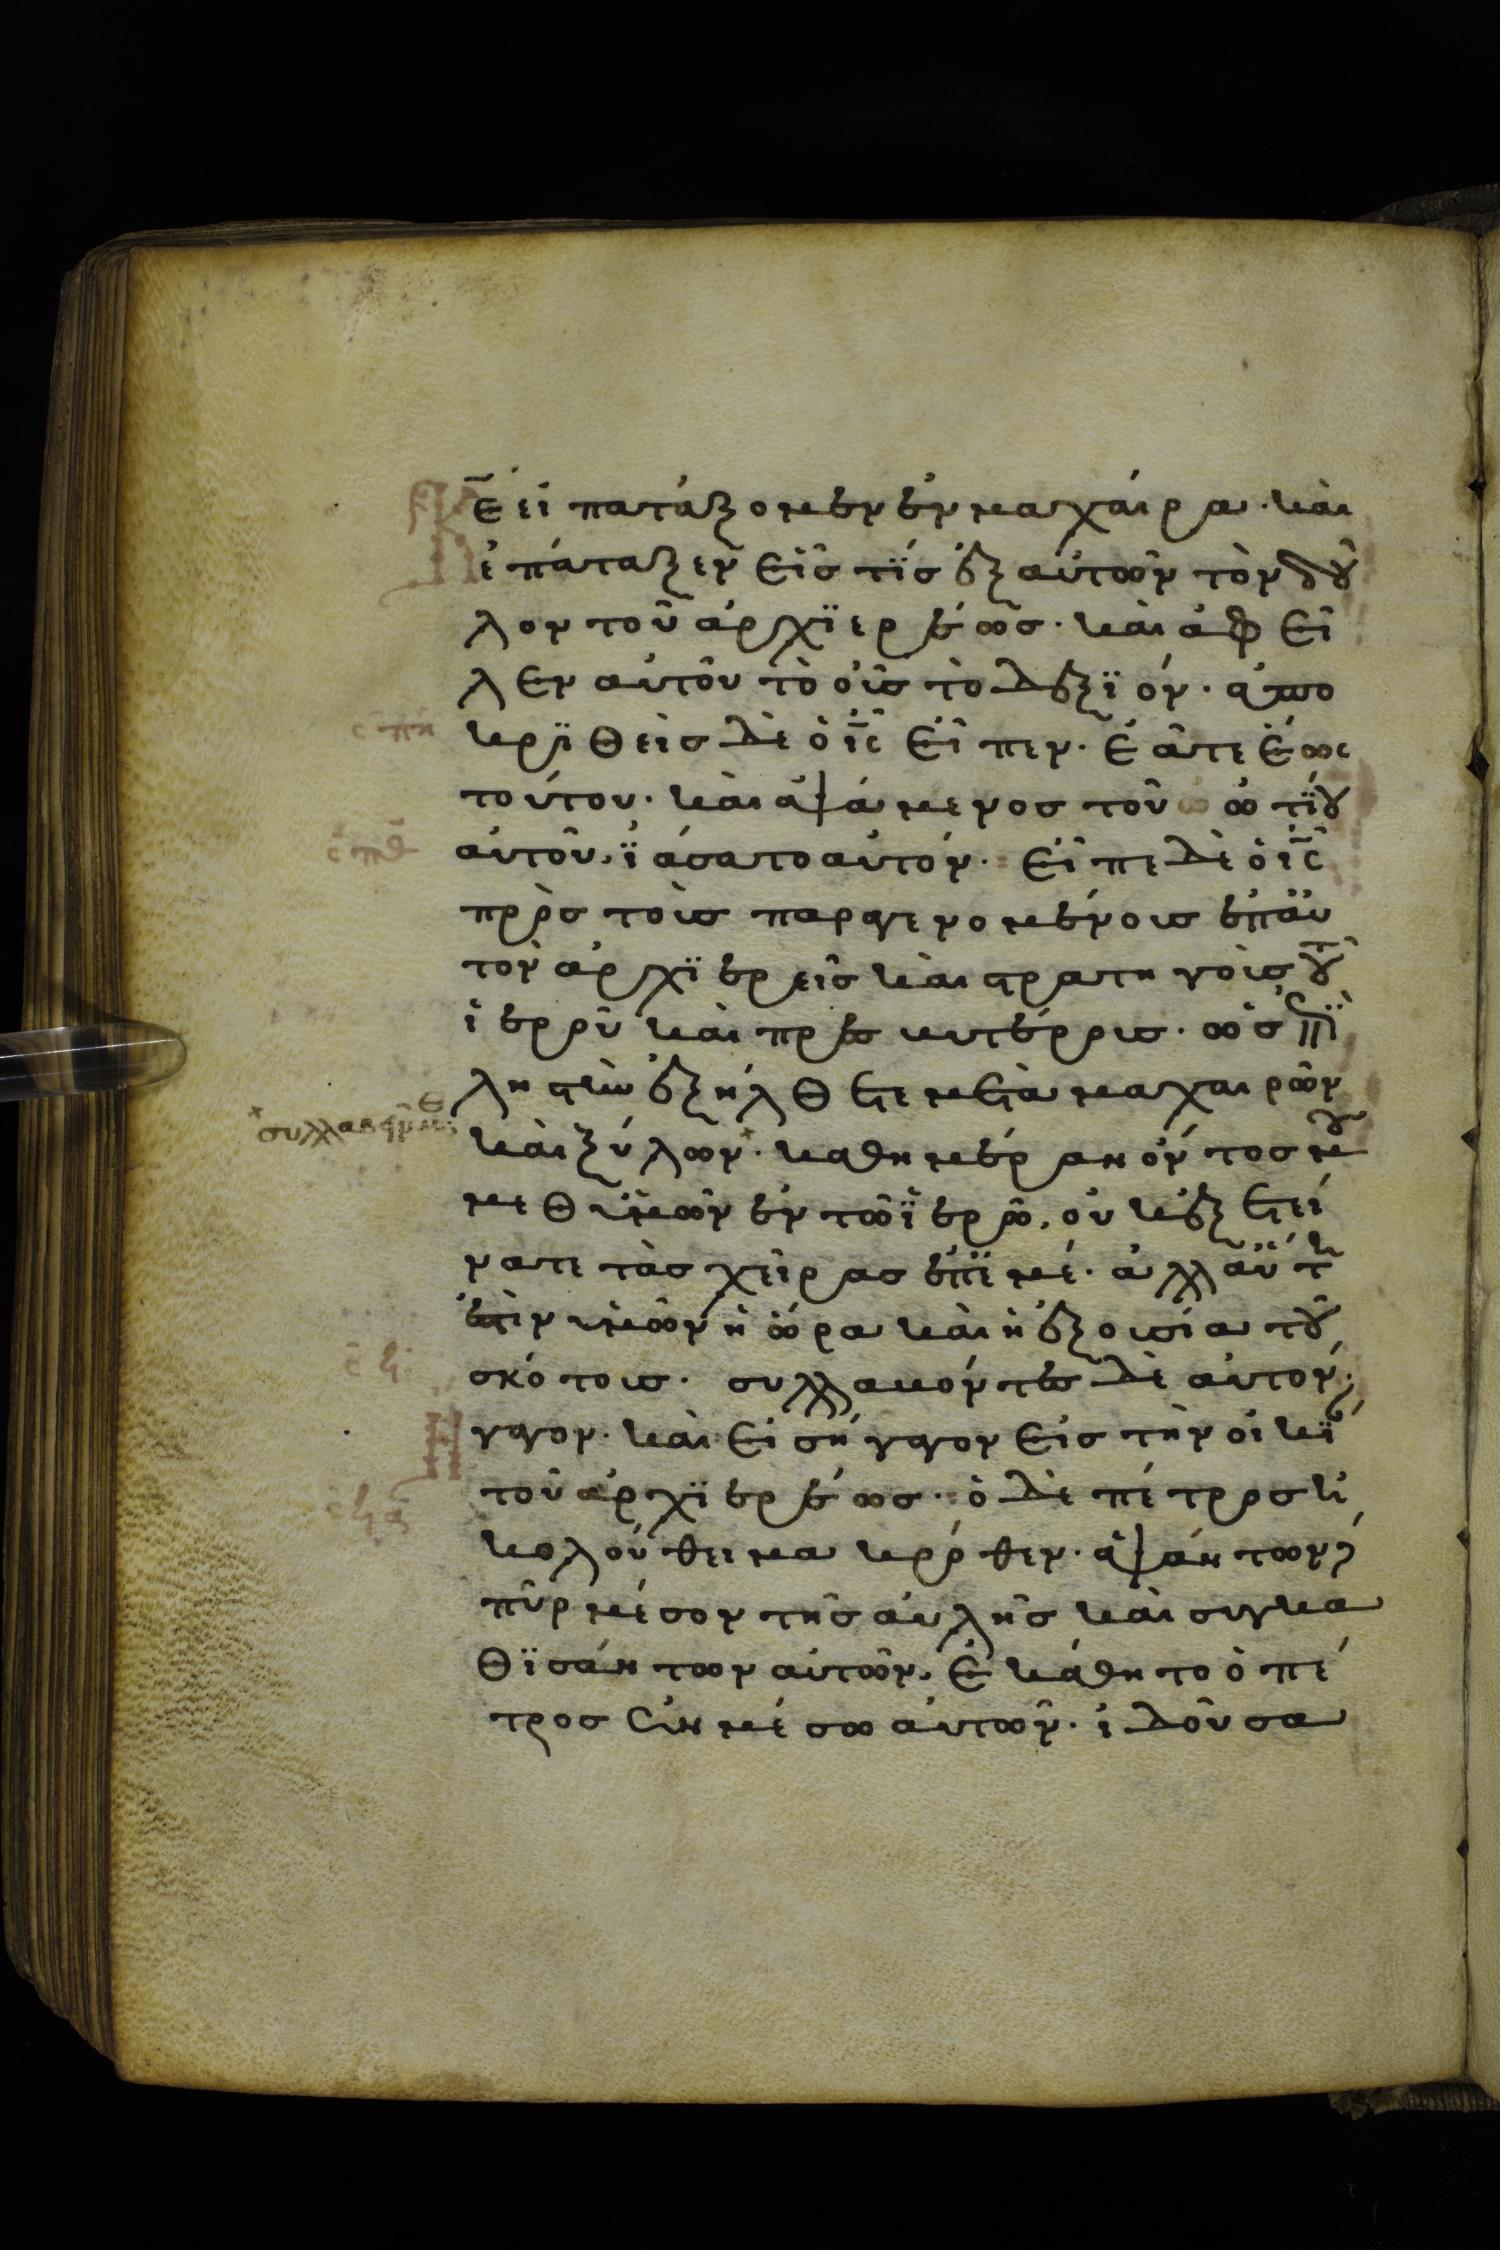 κ̅ε̅ εἰ πατάξομεν ἐν μαχαίρα· καὶ
ἐπάταξεν εἷς τῒς ἐξ αὐτῶν τὸν δοῦ
λον τοῦ ἀρχϊερέως· καὶ ἀφεῖ
λεν αὐτοῦ τὸ οὖς τὸ δεξϊόν· ἀπο
κρϊθεὶς δὲ ὁ ι̅ς̅ εἶπεν· ἐᾶτε ἕως
τούτου· καὶ ἁψάμενος τοῦ ὠτΐου
αὐτοῦ, ϊάσατο αὐτόν· εἶπε δὲ ὁ ι̅ς̅
πρὸς τοὺς παραγενομένους ἐπ αὐ
τὸν ἀρχϊερεῖς καὶ στρατηγοὺς τοῦ
ἱεροῦ καὶ πρεσβυτέρους· ὡς ἐπὶ
ληστὴν ἐξήλθετε μετὰ μαχαιρῶν
καὶ ξύλων· καθημέραν ὄντος μου
μεθ ὑμῶν ἐν τῶ ϊερῶ, οὐκ ἐξετεί
νατε τὰς χεῖρας ἐπ ἐμέ· ἀλλ αὕτη
ἐστὶν ὑμῶν ἡ ὥρα καὶ ἡ ἐξουσία τοῦ
σκότους· συλλαβόντες δὲ αὐτὸν ἤ
γαγον· καὶ εἰσήγαγον εἰς τὴν οἰκΐ
τοῦ ἀρχϊερέως· ὁ δὲ πέτρος ἠ
κολούθει μακρόθεν· ἁψάντων δὲ
πῦρ μέσον τῆς αὐλῆς καὶ συγκα
θϊσάντων αὐτῶν, ἐκάθητο ὁ πέ
τρος ἐν μέσω αὐτῶν· ἰδοῦσα
σπη
σπθ
συλλαβεῖν με